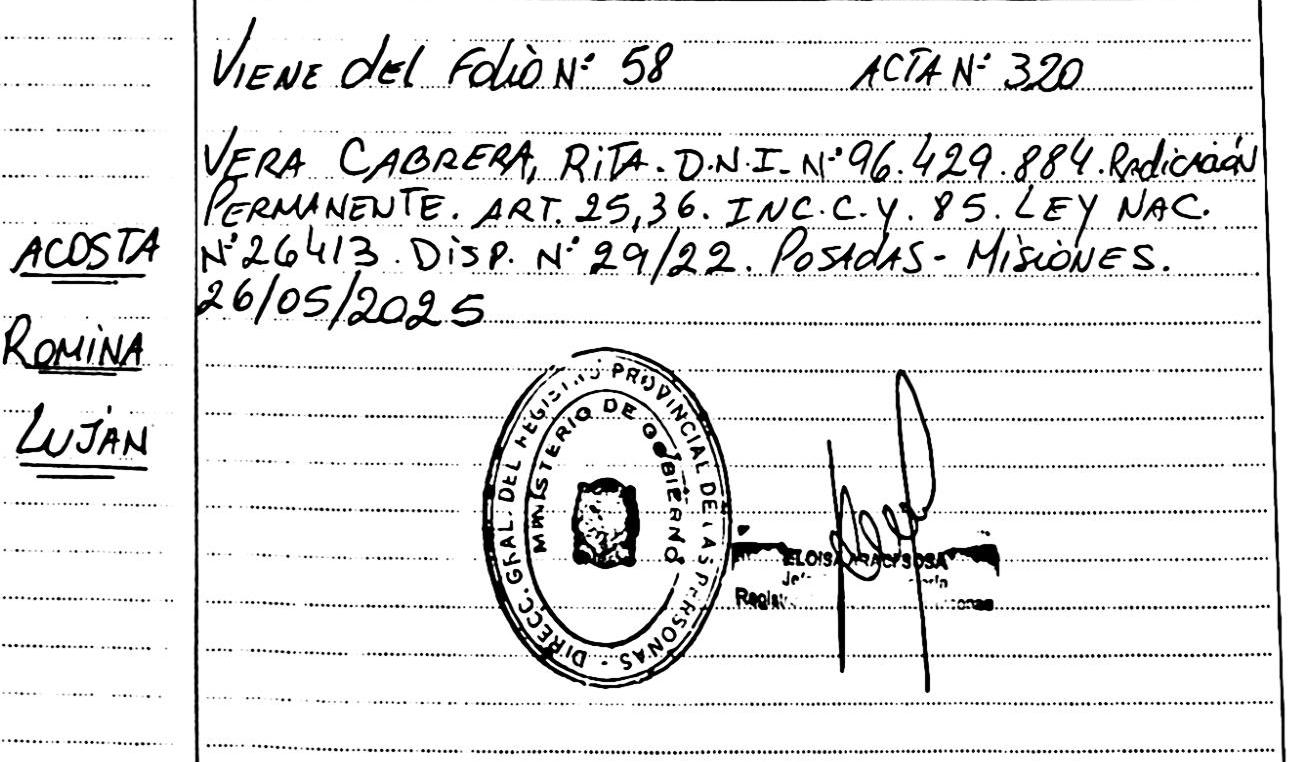 VIENE del Folio Nº 58 ACTA Nº 320
VERA CABRERA, RITA. D.N.I. Nº 96.429.884. Radicación
PERMANENTE. ART. 25,36. INC. C. Y. 85. LEY NAC.
Nº 26413. DISP. Nº 29/22. POSADAS - MISIONES.
26/05/2025
ACOSTA
ROMINA
LUJAN
DIRECC. GRAL. DEL REGISTRO PROVINCIAL DE LAS PERSONAS -
MINISTERIO DE GOBIERNO
ELOISA SOSA